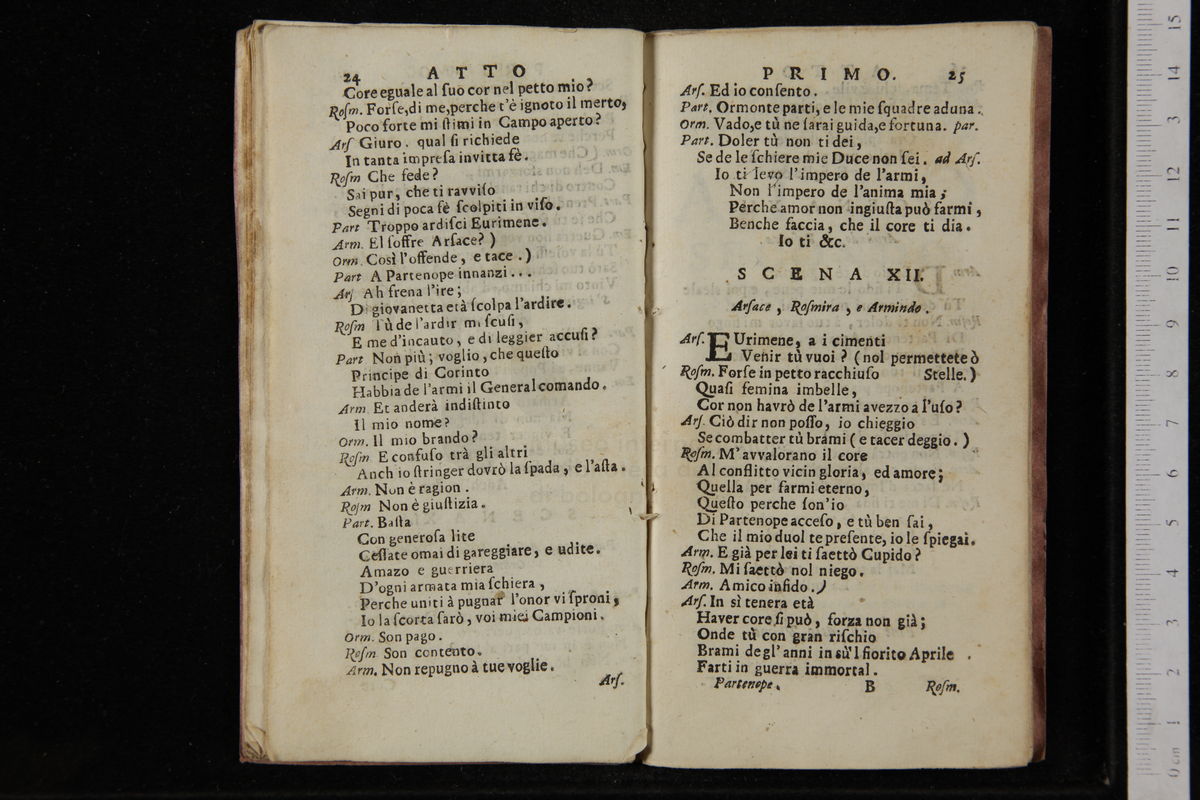 24 ATTO
Core eguale al suo cor nel petto mio?
Rosm. Forſe, di me, perche t'è ignoto il merto,
Poco forte mi ſtimi in Campo aperto?
Arſ Giuro. qual ſi richiede
In tanta impreſa invitta fè.
Roſm Che fede?
Sai pur, che ti ravviſo
Segni di poca fè ſcolpiti in viſo.
Part Troppo ardiſci Eurimene.
Arm. El ſoffre Arſace? )
Orm. Così l'offende, e tace. )
Part A Partenope innanzi...
Arſ Ah frena l'ire;
Di giovanetta età ſcolpa l'ardire.
Roſm Tù de l'ardir mi ſcuſi,
E me d'incauto, e di leggier accuſi?
Part Non più; voglio, che queſto
Principe di Corinto
Habbia de l'armi il General comando.
Arm. Et anderà indiſtinto
Il mio nome?
Orm. Il mio brando?
Roſm E confuſo trà gli altri
Anch io ſtringer dovrò la ſpada, e l'aſta.
Arm. Non è ragion.
Roſm Non è giuſtizia.
Part. Baſta
Con generoſa lite
Ceſſate omai di gareggiare, e udite.
Amazo e guerriera
D'ogni armata mia ſchiera,
Perche uniti à pugnar l'onor vi ſproni,
Io la ſcorta ſarò, voi miei Campioni.
Orm. Son pago.
Roſm Son contento.
Arm. Non repugno à tue voglie.
Arſ.
PRIMO. 25
Arſ. Ed io conſento.
Part. Ormonte parti, e le mie ſquadre aduna.
Orm. Vado, e tù ne ſarai guida, e fortuna. par.
Part. Doler tù non ti dei,
Se de le ſchiere mie Duce non ſei. ad Arſ.
Io ti levo l'impero de l'armi,
Non l'impero de l'anima mia;
Perche amor non ingiuſta può farmi,
Benche faccia, che il core ti dia.
Io ti &c.
SCENA XII.
Arſace, Roſmira, e Armindo.
Arſ. EUrimene, a i cimenti
Venir tù vuoi? (nol permettete ò
Roſm. Forſe in petto racchiuſo Stelle.)
Quaſi femina imbelle,
Cor non havrò de l'armi avezzo a l'uſo?
Arſ. Ciò dir non poſſo, io chieggio
Se combatter tù brami (e tacer deggio.)
Roſm. M'avvalorano il core
Al conflitto vicin gloria, ed amore;
Quella per farmi eterno,
Queſto perche ſon'io
Di Partenope acceſo, e tù ben ſai,
Che il mio duol te preſente, io le ſpiegai.
Arm. E già per lei ti ſaettò Cupido?
Roſm. Mi ſaettò nol niego.
Arm. Amico infido. )
Arſ. In sì tenera età
Haver core ſi può, forza non già;
Onde tù con gran riſchio
Brami degl'anni in sù'l fiorito Aprile.
Farti in guerra immortal.
Partenope. B Roſm.
0 cm 1 2 3 4 5 6 7 8 9 10 11 12 13 14 15